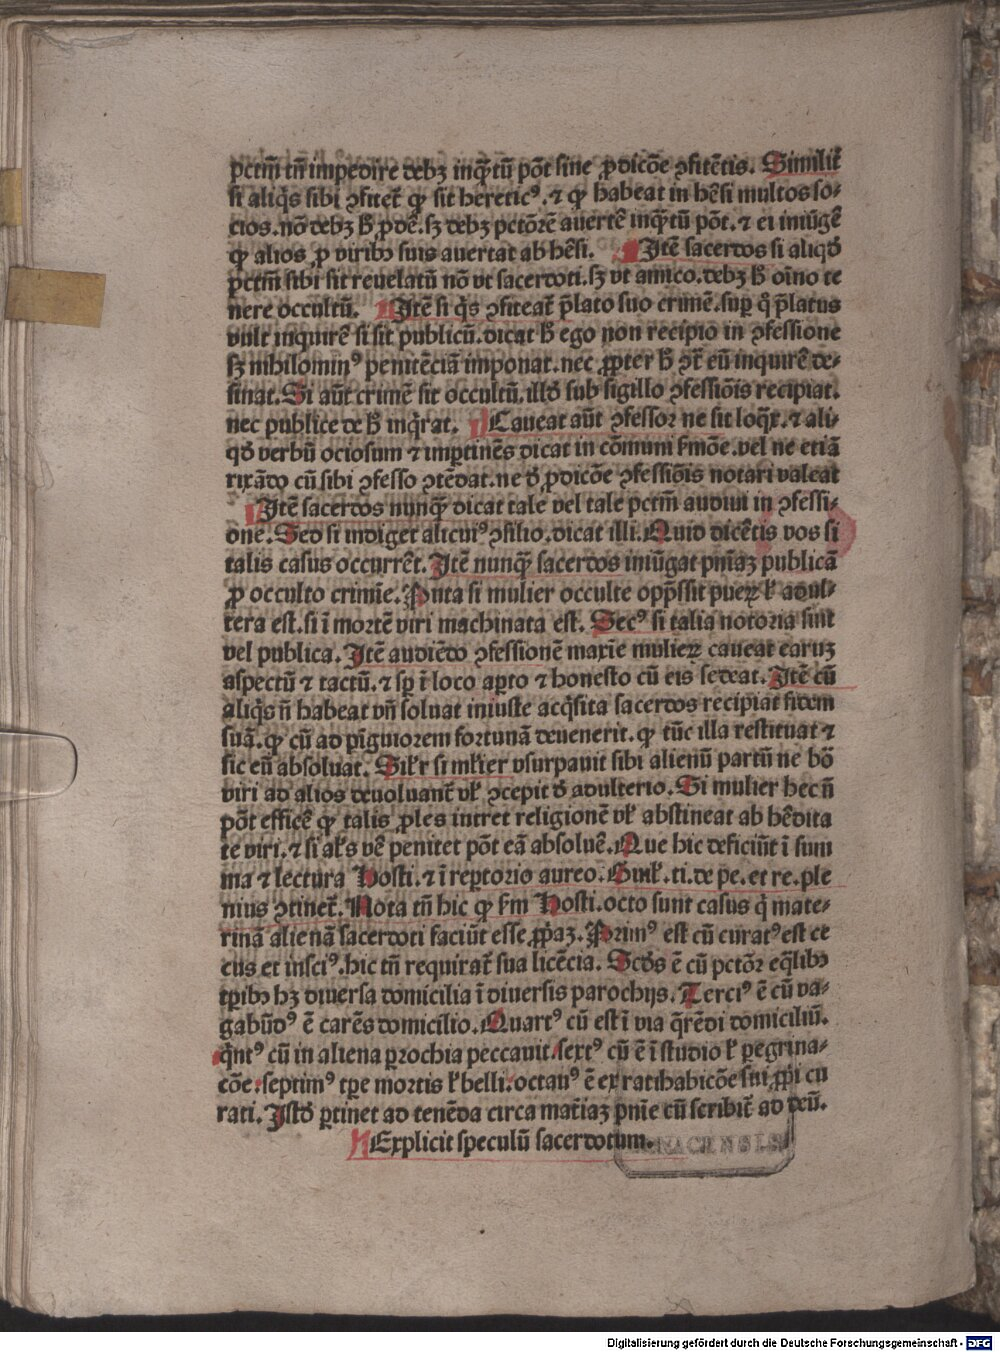 pctm̄ tn̄ impedire debꝫ inqͣtū pōt sine ꝓdicōe ꝯfitētis. Similit̄
si aliq̇s sibi ꝯfitet̄ ꝙ sit heretic⁹. ⁊ ꝙ habeat in hēsi multos so-
cios. nō debꝫ h̄ ꝓdē. sꝫ debꝫ pctōrē avertē inqͣtū pōt. ⁊ ei iniūgē
ꝙ alios ꝓ viribꝰ suis auertat ab hēsi. Itē sacerdos si aliqd̄
pctm̄ sibi sit reuelatū nō vt sacerdoti. sꝫ vt amico. debꝫ h̄ oīno te
nere occultū. Itē si q̇s ꝯfiteat̄ p̄lato suo crimē. suꝑ q̄ p̄latus
vult inquirē si sit publicū. dicat h̄ ego non recipio in ꝯfessione
sꝫ nihilomin⁹ penitēciā imponat. nec ꝓpter h̄ ꝯͣ eū inquirē de-
sinat. Si aūt crimē sit occultū. illd̄ sub sigillo ꝯfessiōis recipiat.
nec publice de h̄ inq̇rat. Caueat aūt ꝯfessor ne sit loqͣx. ⁊ ali-
qd̄ verbū ociosum ⁊ imꝑtinēs dicat in cōmuni ẜmōe. vel ne etiā
rixādo cū sibi ꝯfesso ꝯtēdat. ne d̄ ꝓdicōe ꝯfessiōis notari valeat
Itē sacerdos nunqͣ dicat tale vel tale pctm̄ audiui in ꝯfessi-
one. Sed si indiget alicui⁹ ꝯsilio. dicat illi. Quid dicētis vos si
talis casus occurrēt. Itē nunqͣ sacerdos iniūgat pn̄iaꝫ publicā
ꝓ occulto crimīe. Puta si mulier occulte opp̄ssit pueꝝ ł adul-
tera est. si ī mortē viri machinata est. Sec⁹ si talia notoria sint
vel publica. Itē audiēdo ꝯfessionē maxīe mulieꝝ caueat earuꝫ
aspectū ⁊ tactū. ⁊ sꝑ ī loco aꝑto ⁊ honesto cū eis sedeat. Itē cū
aliq̇s n̄ habeat vn̄ soluat iniuste acq̇sita sacerdos recipiat fidem
suā. ꝙ cū ad pīguiorem fortunā deuenerit. ꝙ tūc illa restituat ⁊
sic eū absoluat. Silr̄ si ml̄ier vsurpauit sibi alienū partū ne bō
viri ad alios deuoluant̄ vł ꝯcepit d̄ adulterio. Si mulier hec n̄
pōt efficē ꝙ talis ꝓles intret religionē vł abstineat ab hēdita
te viri. ⁊ si al̄s vē penitet pōt eā absoluē. Que hic deficiūt ī sum
ma ⁊ lectura Hosti. ⁊ ī reꝑtorio aureo. Guil̄. ti. de pe. et re. ple
nius ꝯtinet̄. Nota tn̄ hic ꝙ ẜm Hosti. octo sunt casus q̄ mate-
rinā alienā sacerdoti faciūt esse ꝓp̄aꝫ. Prim⁹ est cū curat⁹ est ce
cus et insci⁹. hic tn̄ requirat̄ sua licēcia. Scd̄s ē cū pctōr eq̄libꝰ
tꝑibꝰ hꝫ diuersa domicilia ī diuersis parochijs. Terci⁹ ē cū va-
gabūd⁹ ē carēs domicilio. Quart⁹ cū est ī via q̄rēdi domiciliū.
q̇nt⁹ cū in aliena ꝑrochia peccauit. sext⁹ cū ē ī studio ł ꝑegrina-
cōe. septim⁹ tꝑe mortis ł belli. octau⁹ ē ex ratihabicōe sui ꝓp̄i cu
rati. Istd̄ ꝑtinet ad tenēda circa mat̄iaꝫ pn̄ie cū scribit̄ ad deū.
Explicit speculū sacerdotum.
Digitalisierung gefördert durch die Deutsche Forschungsgemeinschaft - DFG